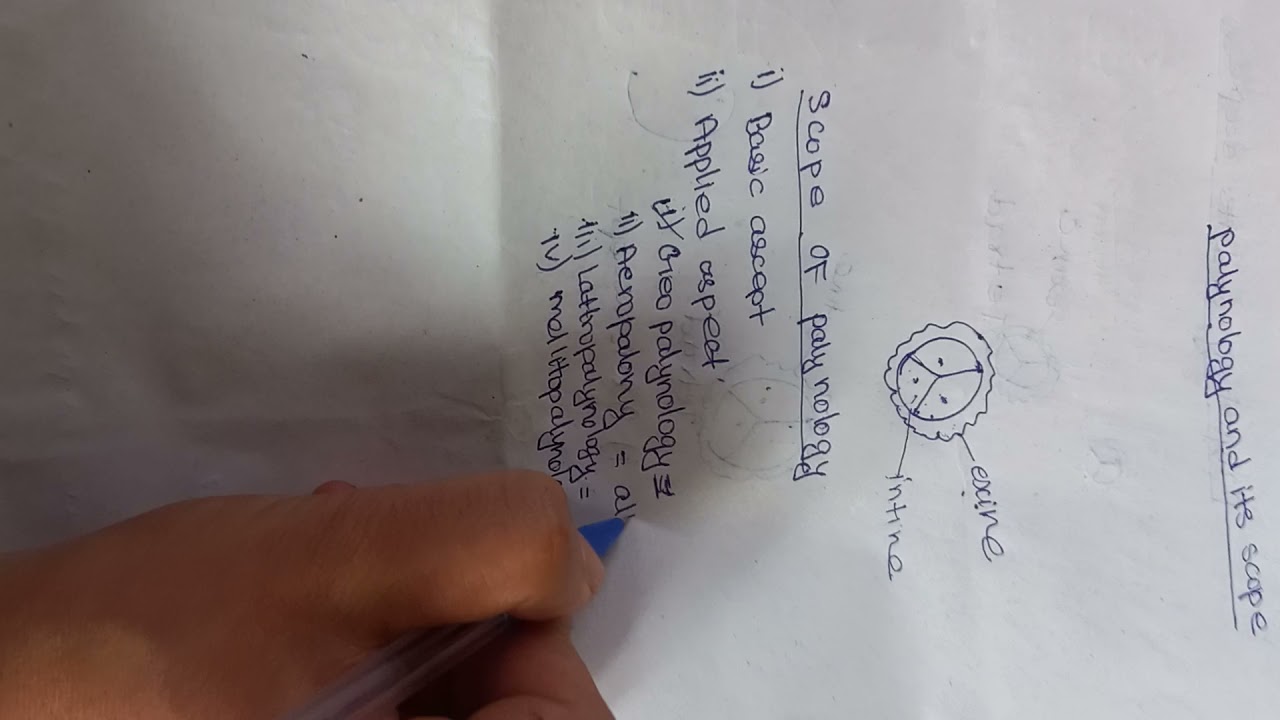 palynology and its scope
exine
intine
Scope OF palynology
i) Basic ascept
ii) Applied aspect
i) Geo palynology =
ii) Aeropalony = all
iii) Lattropalynology =
iv) mellittopalynol